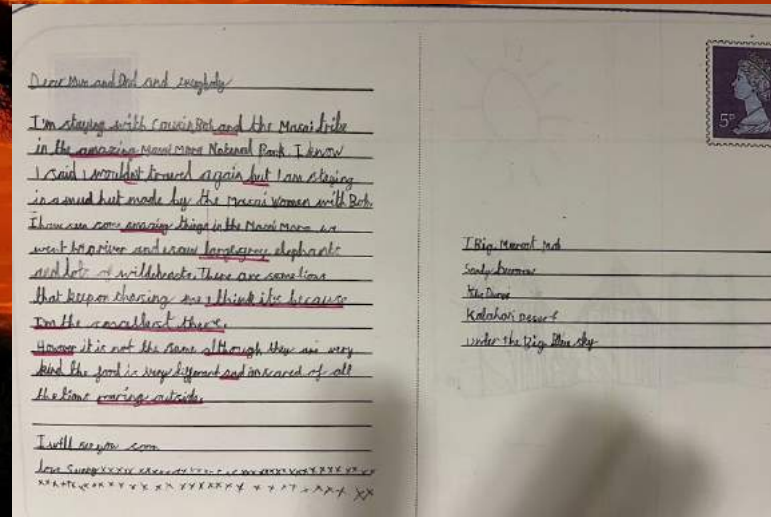 Dear Mum and Dad and everybody
I'm staying with Cousin Bob and the Masai tribe
in the amazing Masai Mara National Park. I know
I said I wouldn't travel again but I am staying
in a mud hut made by the Masai women with Bob.
I have seen some amazing things in the Masai Mara we
went to a river and I saw large grey elephants
and lots of wildebeasts. There are some lions
that keep on chasing me I think its because
I'm the smallest there.
However it is not the same although they are very
kind the food is very different and im scared of all
the lions roaring outside.
I will see you soon
love Sunny xxxx
5P
1 Big Meercat Mob
Sandy burrow
The Dunes
Kalahari Desert
under the big blue sky